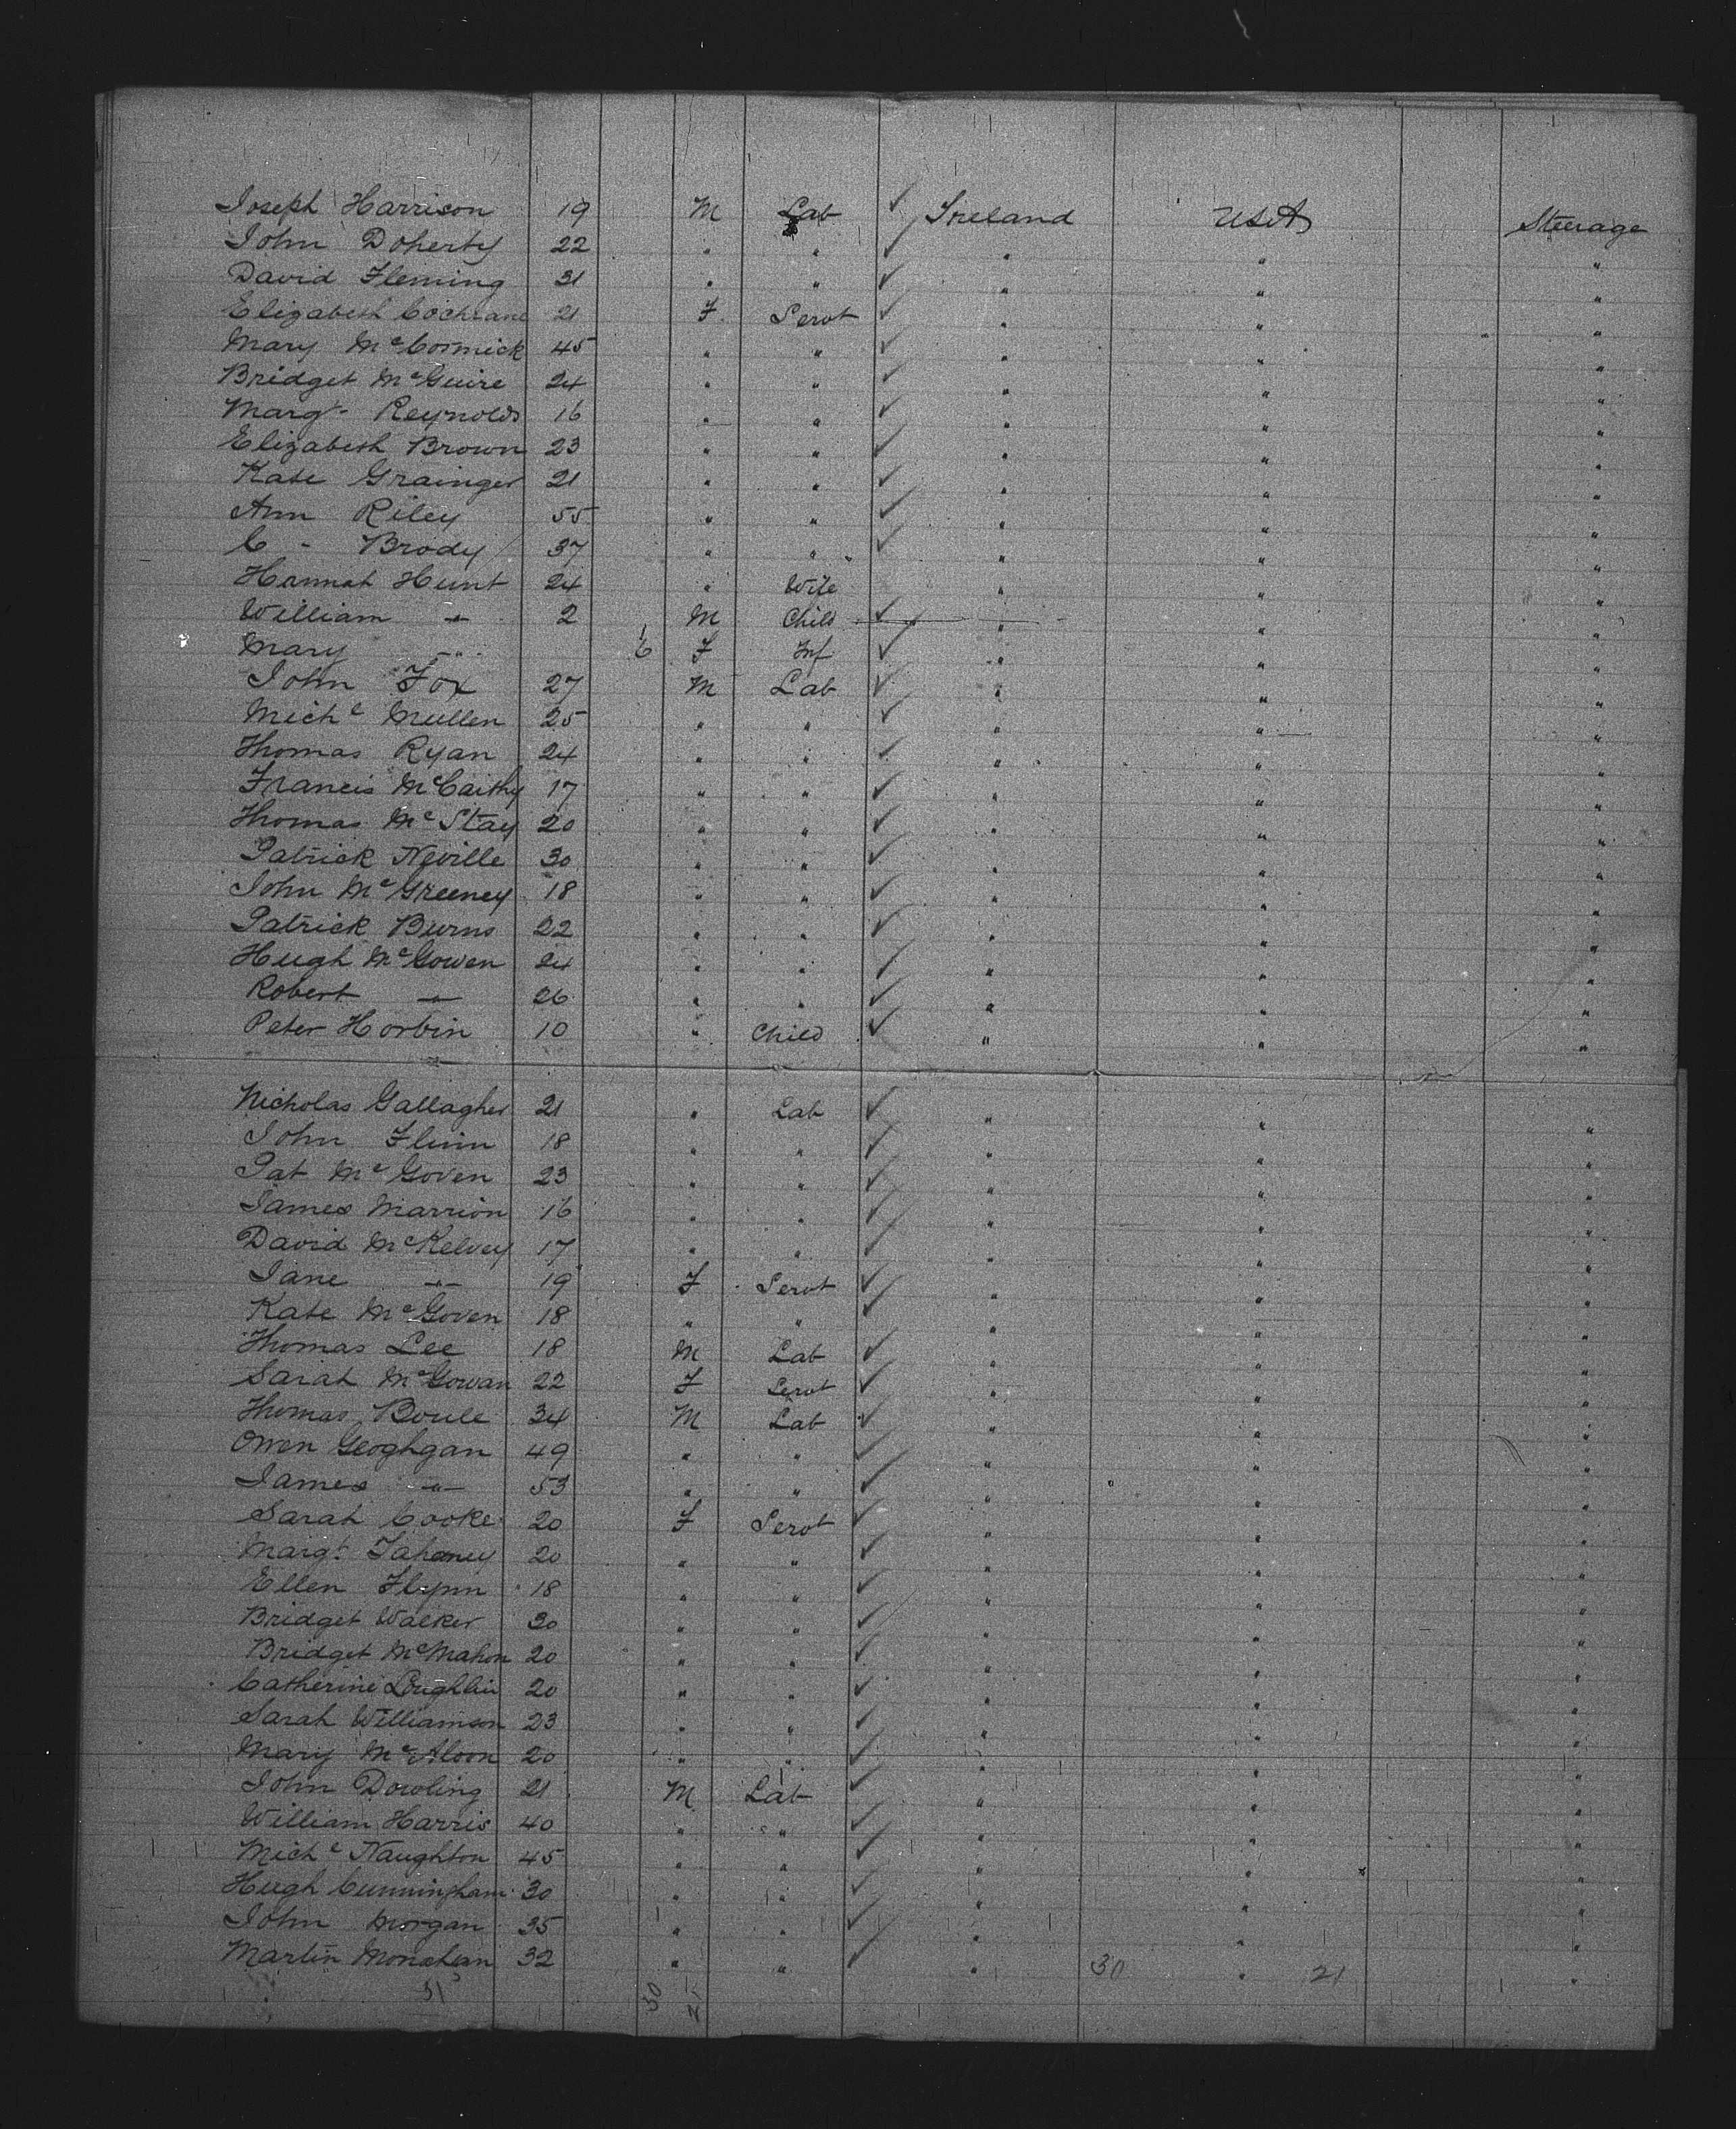 Joseph Harrison 19 M Lab ✓ Ireland USA Steerage
John Doherty 22 " " ✓ " " "
David Fleming 31 " " ✓ " " "
Elizabeth Cochrane 21 F Servt ✓ " " "
Mary McCormick 45 " " ✓ " " "
Bridget McGuire 24 " " ✓ " " "
Margt Reynolds 16 " " ✓ " " "
Elizabeth Brown 23 " " ✓ " " "
Kate Grainger 21 " " ✓ " " "
Ann Riley 55 " " ✓ " " "
C - Brody 37 " " ✓ " " "
Hannah Hunt 24 " Wife " " "
William " 2 M Child ✓ " " "
Mary " 6 F Inf ✓ " " "
John Fox 27 M Lab ✓ " " "
Michl Mullen 25 " " ✓ " " "
Thomas Ryan 24 " " ✓ " " "
Francis McCarthy 17 " " ✓ " " "
Thomas McStay 20 " " ✓ " " "
Patrick Neville 30 " " ✓ " " "
John McGreeney 18 " " ✓ " " "
Patrick Burns 22 " " ✓ " " "
Hugh McGowen 24 " " ✓ " " "
Robert " 26 " " ✓ " " "
Peter Horbin 10 " Child ✓ " " "
Nicholas Gallagher 21 " Lab ✓ " " "
John Flinn 18 " " ✓ " " "
Pat McGoven 23 " " ✓ " " "
James Marrion 16 " " ✓ " " "
David McKelvey 17 " " ✓ " " "
Jane " 19 F Servt ✓ " " "
Kate McGoven 18 " " ✓ " " "
Thomas Lee 18 M Lab ✓ " " "
Sarah McGowan 22 F Servt ✓ " " "
Thomas Boule 34 M Lab ✓ " " "
Owen Geoghgan 49 " " ✓ " " "
James " 53 " " ✓ " " "
Sarah Cooke 20 F Servt ✓ " " "
Margt 20 " " ✓ " " "
Ellen Flynn 18 " " ✓ " " "
Bridget Walker 30 " " ✓ " " "
Bridget McMahon 20 " " ✓ " " "
Catherine Loughlin 20 " " ✓ " " "
Sarah Williamson 23 " " ✓ " " "
Mary McAloon 20 " " ✓ " " "
John Dowling 21 M Lab ✓ " " "
William Harris 40 " " ✓ " " "
Michl Naughton 45 " " ✓ " " "
Hugh Cunningham 30 " " ✓ " " "
John Morgan 35 " " ✓ " " "
Martin Monahan 32 " " ✓ " 30 " 21 "
51 30 21